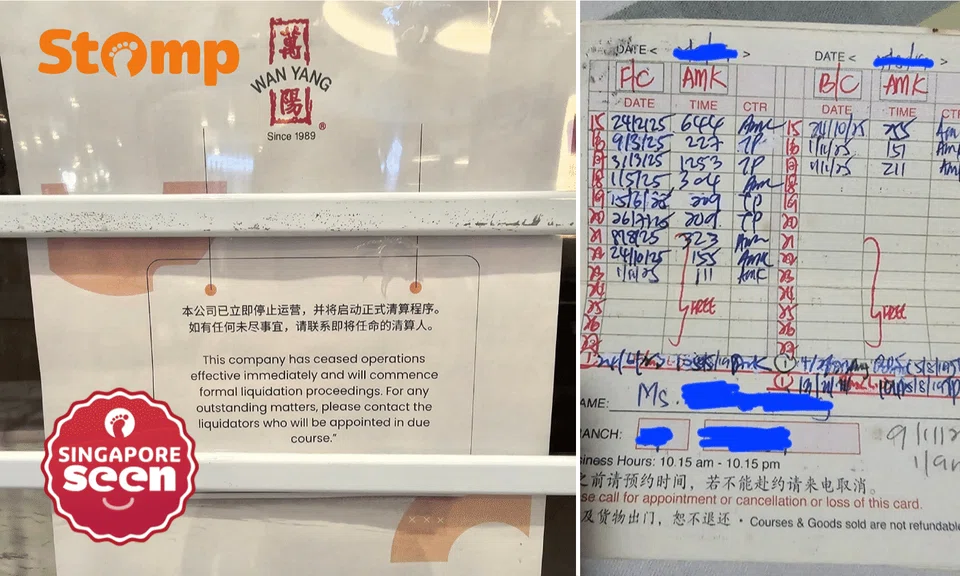 Stomp
萬
WAN YANG
陽
®
Since 1989
本公司已立即停止运营，并将启动正式清算程序。
如有任何未尽事宜，请联系即将任命的清算人。
This company has ceased operations
effective immediately and will commence
formal liquidation proceedings. For any
outstanding matters, please contact the
liquidators who will be appointed in due
course."
SINGAPORE
seen
DATE < > DATE <
F/C AMK B/C AMK
DATE TIME CTR DATE TIME CTR
15 24/2/25 644 Amk 15 24/10/25 255 Am
16 9/3/25 227 TP 16 1/11/25 151 Am
17 31/3/25 1253 TP 17 211 Am
18 1/5/25 304 Amk 18
19 15/6/25 209 TP 19
20 26/7/25 209 TP 20
21 8/8/25 323 Amk 21
22 24/10/25 155 Amk 22
23 1/11/25 111 AMK 23
24 24
25 FREE 25 FREE
26 26
27 27
AME: Ms.
RANCH: 9/11/2
siness Hours: 10.15 am - 10.15 pm
之前请预约时间，若不能赴约请来电取消。
se call for appointment or cancellation or loss of this card.
及货物出门，恕不退还 • Courses & Goods sold are not refundable